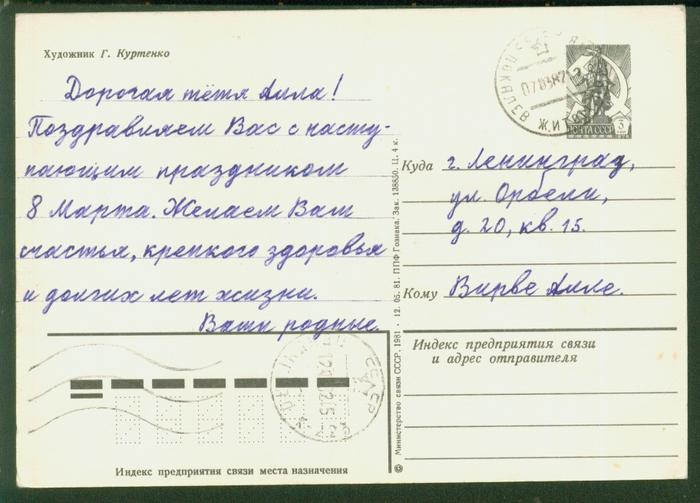 Художник Г. Куртенко
Дорогая тётя Алла!
Поздравляем Вас с насту-
пающим праздником
8 Марта. Желаем Вам
счастья, крепкого здоровья
и долгих лет жизни.
Ваши родные.
ПОЧТА СССР
3
Куда г. Ленинград,
ул. Орбели,
д. 20, кв. 15.
Кому Вирве Алле.
Индекс предприятия связи
и адрес отправителя
Индекс предприятия связи места назначения
© Министерство связи СССР, 1981 · 12. 05. 81. ППФ Гознака. Зак. 138850. Ц. 4 к.